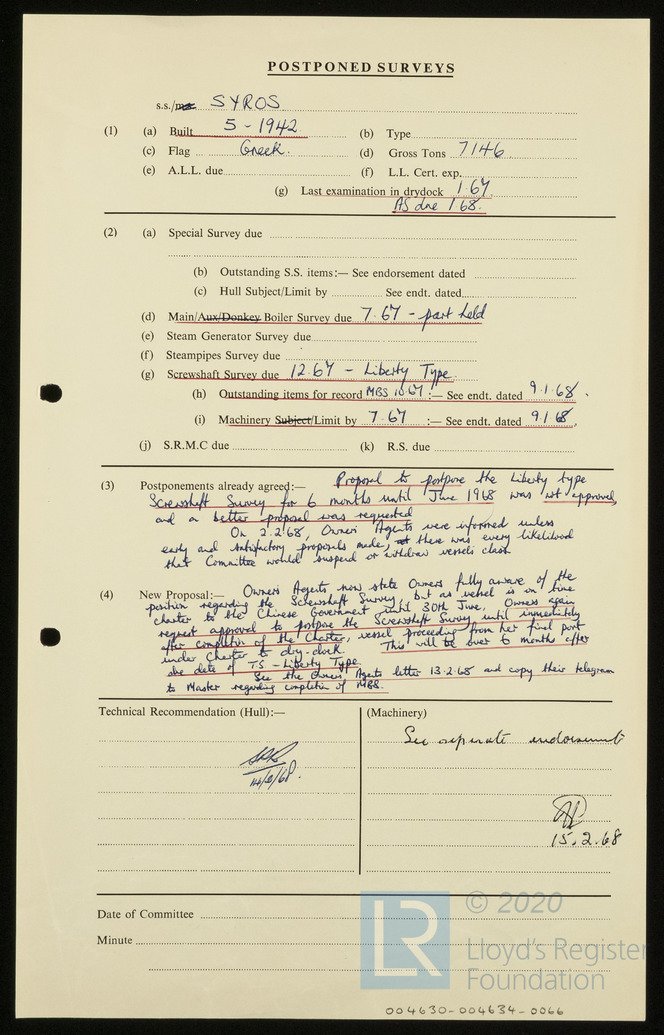 POSTPONED SURVEYS
s.s./m.s. SYROS
(1) (a) Built 5 - 1942 (b) Type
(c) Flag Greek. (d) Gross Tons 7146
(e) A.L.L. due (f) L.L. Cert. exp.
(g) Last examination in drydock 1.67
AS due 1.68.
(2) (a) Special Survey due
(b) Outstanding S.S. items:— See endorsement dated
(c) Hull Subject/Limit by See endt. dated
(d) Main/Aux/Donkey Boiler Survey due 7.67 - part held
(e) Steam Generator Survey due
(f) Steampipes Survey due
(g) Screwshaft Survey due 12.67 - Liberty Type.
(h) Outstanding items for record MBS 10.67 :— See endt. dated 9.1.68.
(i) Machinery Subject/Limit by 7.67 :— See endt. dated 9.1.68,
(j) S.R.M.C due (k) R.S. due
(3) Postponements already agreed:— Proposal to postpone the Liberty type
Screwshaft Survey for 6 months until June 1968 was not approved,
and a better proposal was requested
On 2.2.68, Owners Agents were informed unless
early and satisfactory proposals made, there was every likelihood
that Committee would suspend or withdraw vessels class
(4) New Proposal:— Owners Agents now state Owners fully aware of the
position regarding the Screwshaft Survey, but as vessel is on time
charter to the Chinese Government until 30th June, Owners again
request approval to postpone the Screwshaft Survey until immediately
after completion of the Charter, vessel proceeding from her final port
under Charter to dry-dock. This will be over 6 months after
due date of TS - Liberty Type.
See the Owners' Agents letter 13.2.68 and copy their telegram
to Master regarding completion of MBS.
Technical Recommendation (Hull):— (Machinery)
See separate endorsement
14/2/68.
15.2.68
Date of Committee
Minute
LR
© 2020
Lloyd's Register
Foundation
004630-004634-0066